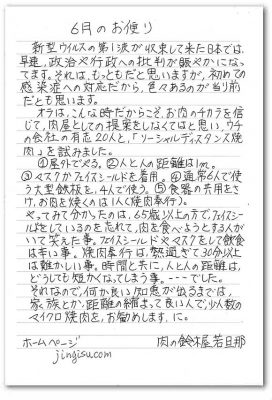 6月のお便り
新型ウイルスの第1波が収束して来た日本では、
早速、政治や行政への批判が賑やかになっ
てます。それは、もっともだと思いますが、初めての
感染症への対応だから、色々あるのが当り前
だとも思います。
オラは、こんな時だからこそ、お肉のチカラを信
じて、肉屋としての提案をしなくてはと思い、ウチ
の会社の有志20人と、「ソーシャルディスタンス焼
肉」を試みました。
①屋外でやる。②人と人の距離は1m。
③マスクかフェイスシールドを着用。④通常6人で使
う大型鉄板を、4人で使う。⑤食器の共用をさ
け、お肉を焼くのは1人(焼肉奉行)。
やってみて分かったのは、65歳以上の方で、フェイスシー
ルドをしているのを忘れて、肉を食べようとする人が
いて笑えた事。フェイスシールドやマスクをして飲食
は辛い事。焼肉奉行は、熱過ぎて30分以上
は難かしい事。時間と共に、人と人の距離は、
どうしても短かくなってしまう事。---でした。
それなので、何か良い知恵が出るまでは、
家族とか、距離の縮まって良い人で、少人数の
マイクロ焼肉を、お勧めします、に。
ホームページ
jingisu.com
肉の鈴木屋若旦那